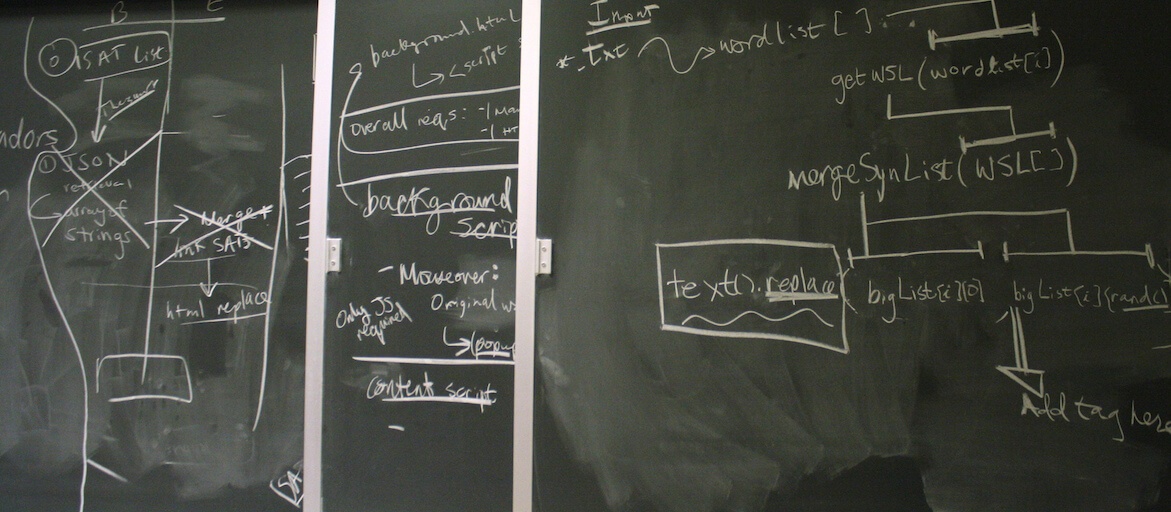 B E
0 SAT List
Thesaurus
ndors
1 JSON
retrieval
array of
strings
Merge +
link SATs
html replace
SA
background.html
<script
overall reqs: -1 Man
-1 HT
background
Scrip
- Mouseover:
Only JS
required
Original w
(popup
Content script
-
Input
*.txt wordlist [ ] :
getWSL(wordlist[i])
mergeSynList(WSL[ ])
text().replace ( bigList[i][0] bigList[i][rand(
Add tag here